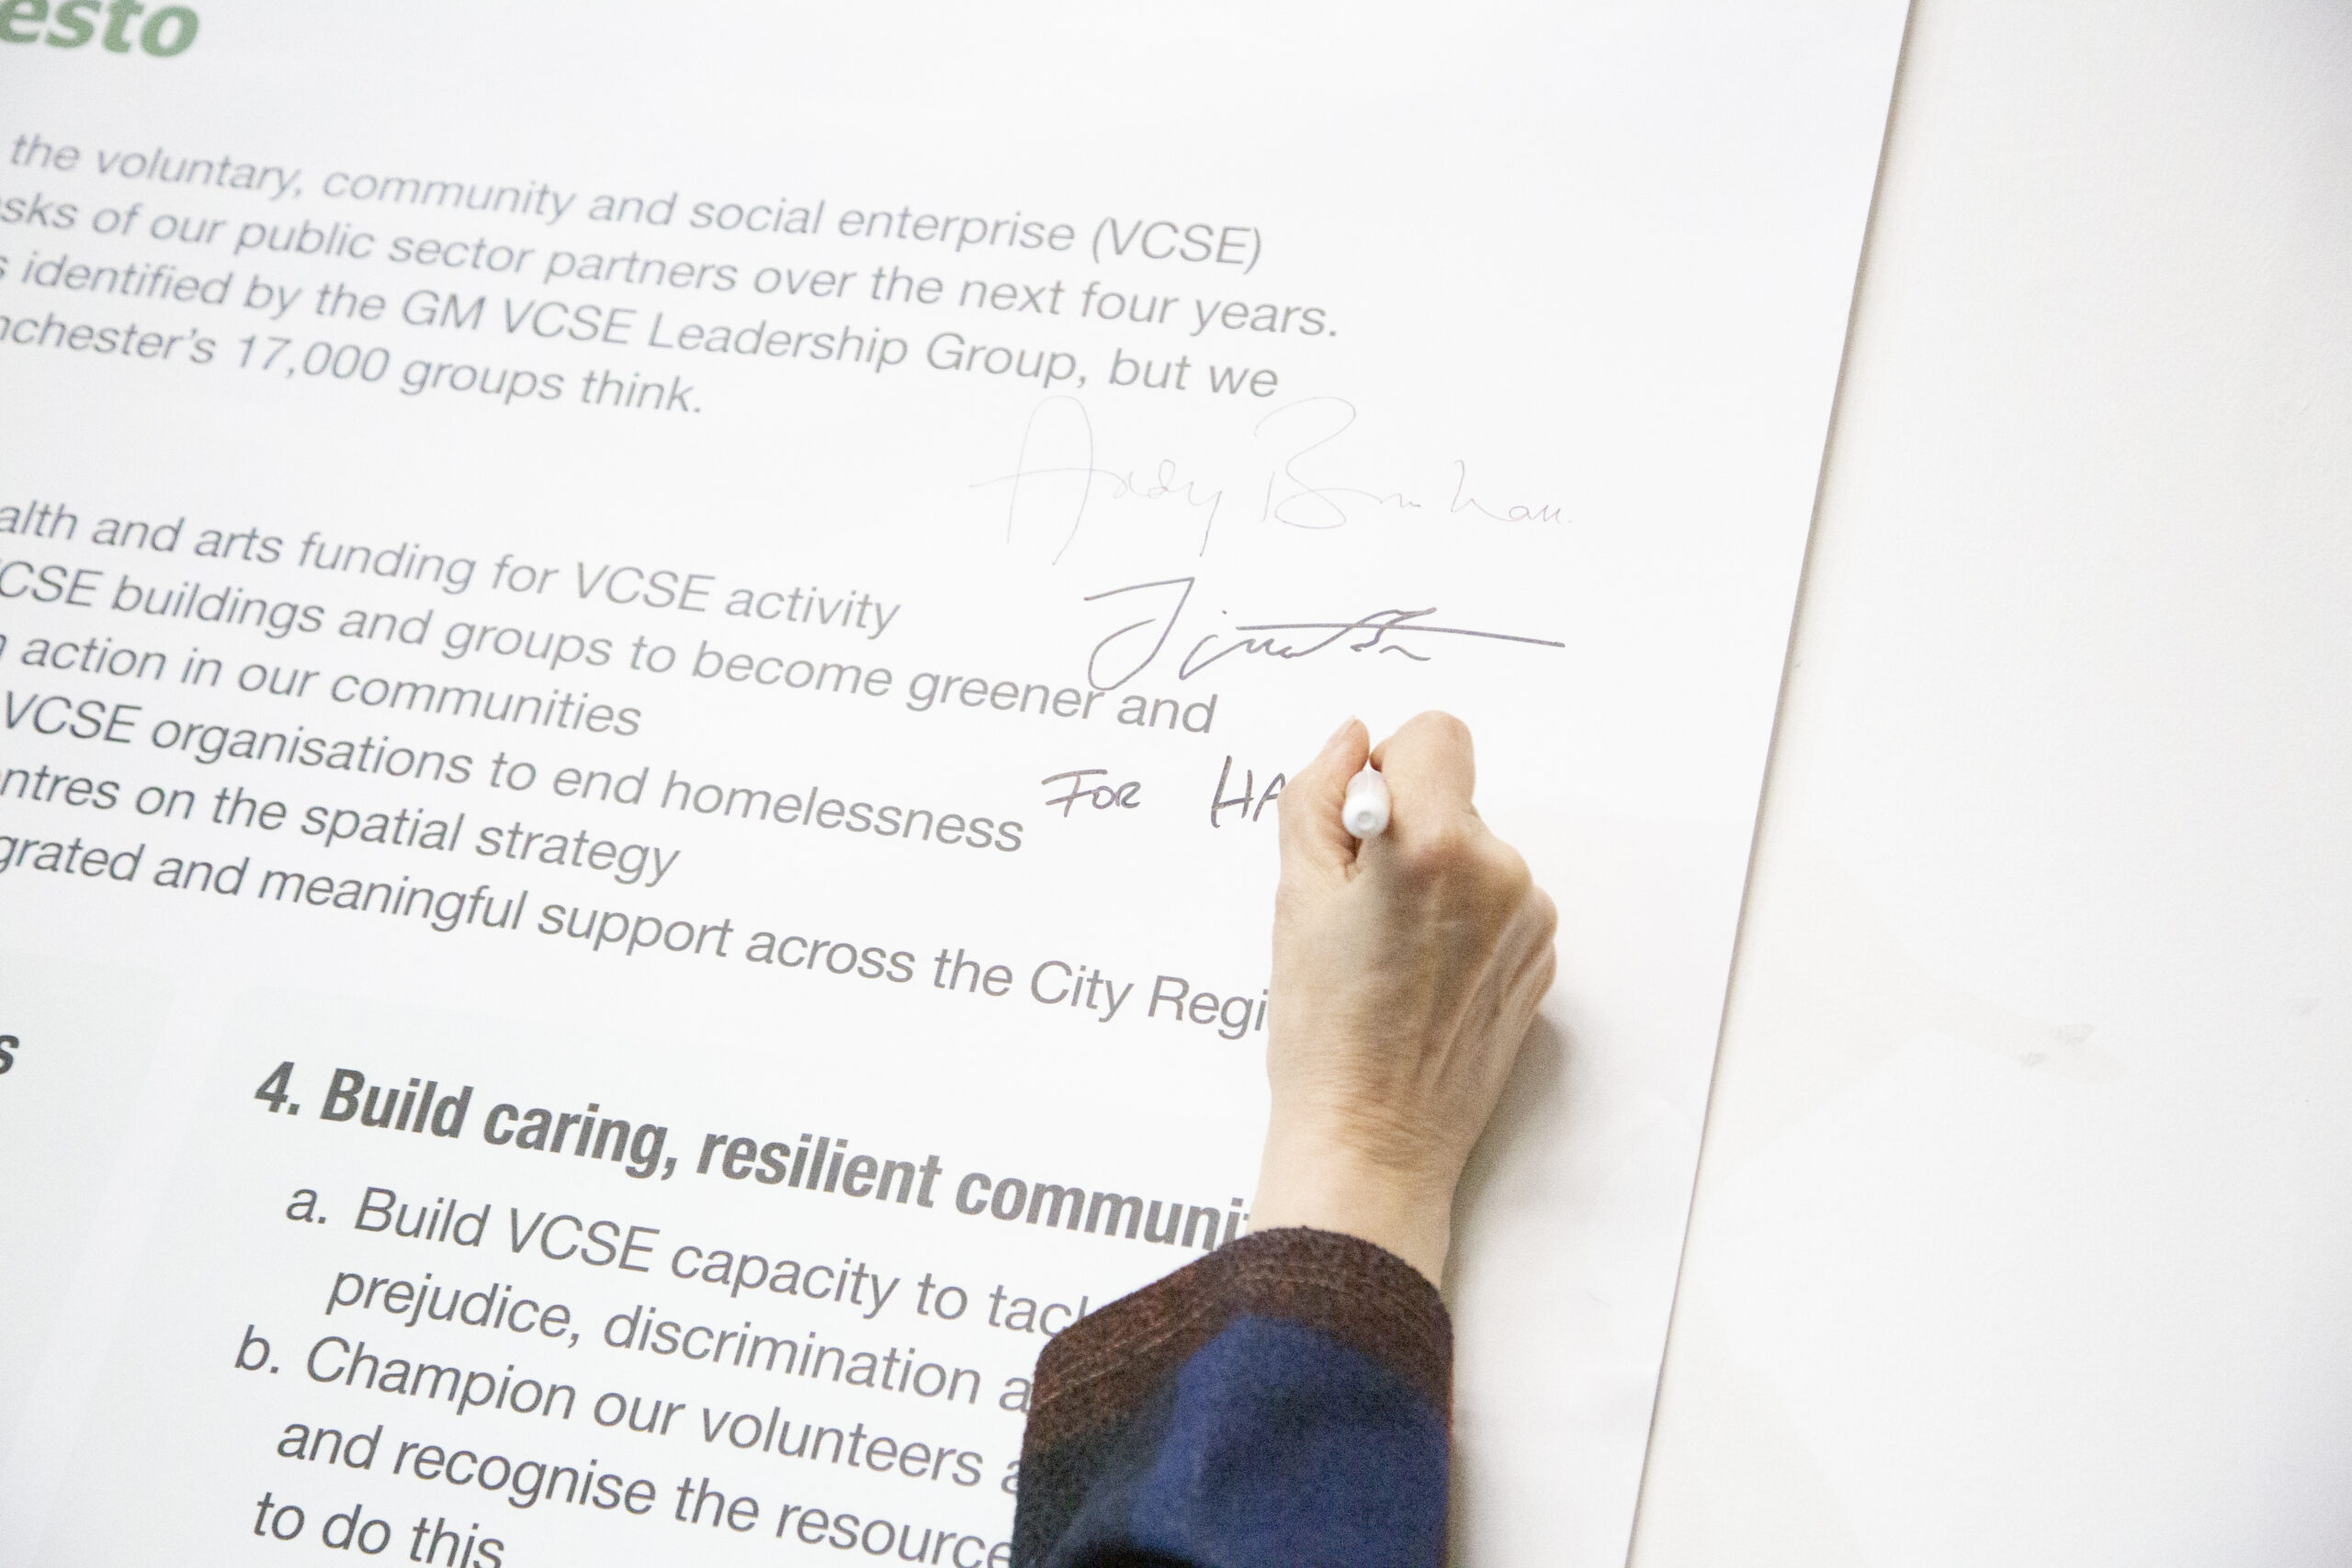 esto
the voluntary, community and social enterprise (VCSE)
sks of our public sector partners over the next four years.
s identified by the GM VCSE Leadership Group, but we
nchester's 17,000 groups think.
Andy Burnham
alth and arts funding for VCSE activity
CSE buildings and groups to become greener and
action in our communities
VCSE organisations to end homelessness
FOR HA
ntres on the spatial strategy
grated and meaningful support across the City Regi
s
4. Build caring, resilient communi
a. Build VCSE capacity to tack
prejudice, discrimination a
b. Champion our volunteers a
and recognise the resource
to do this